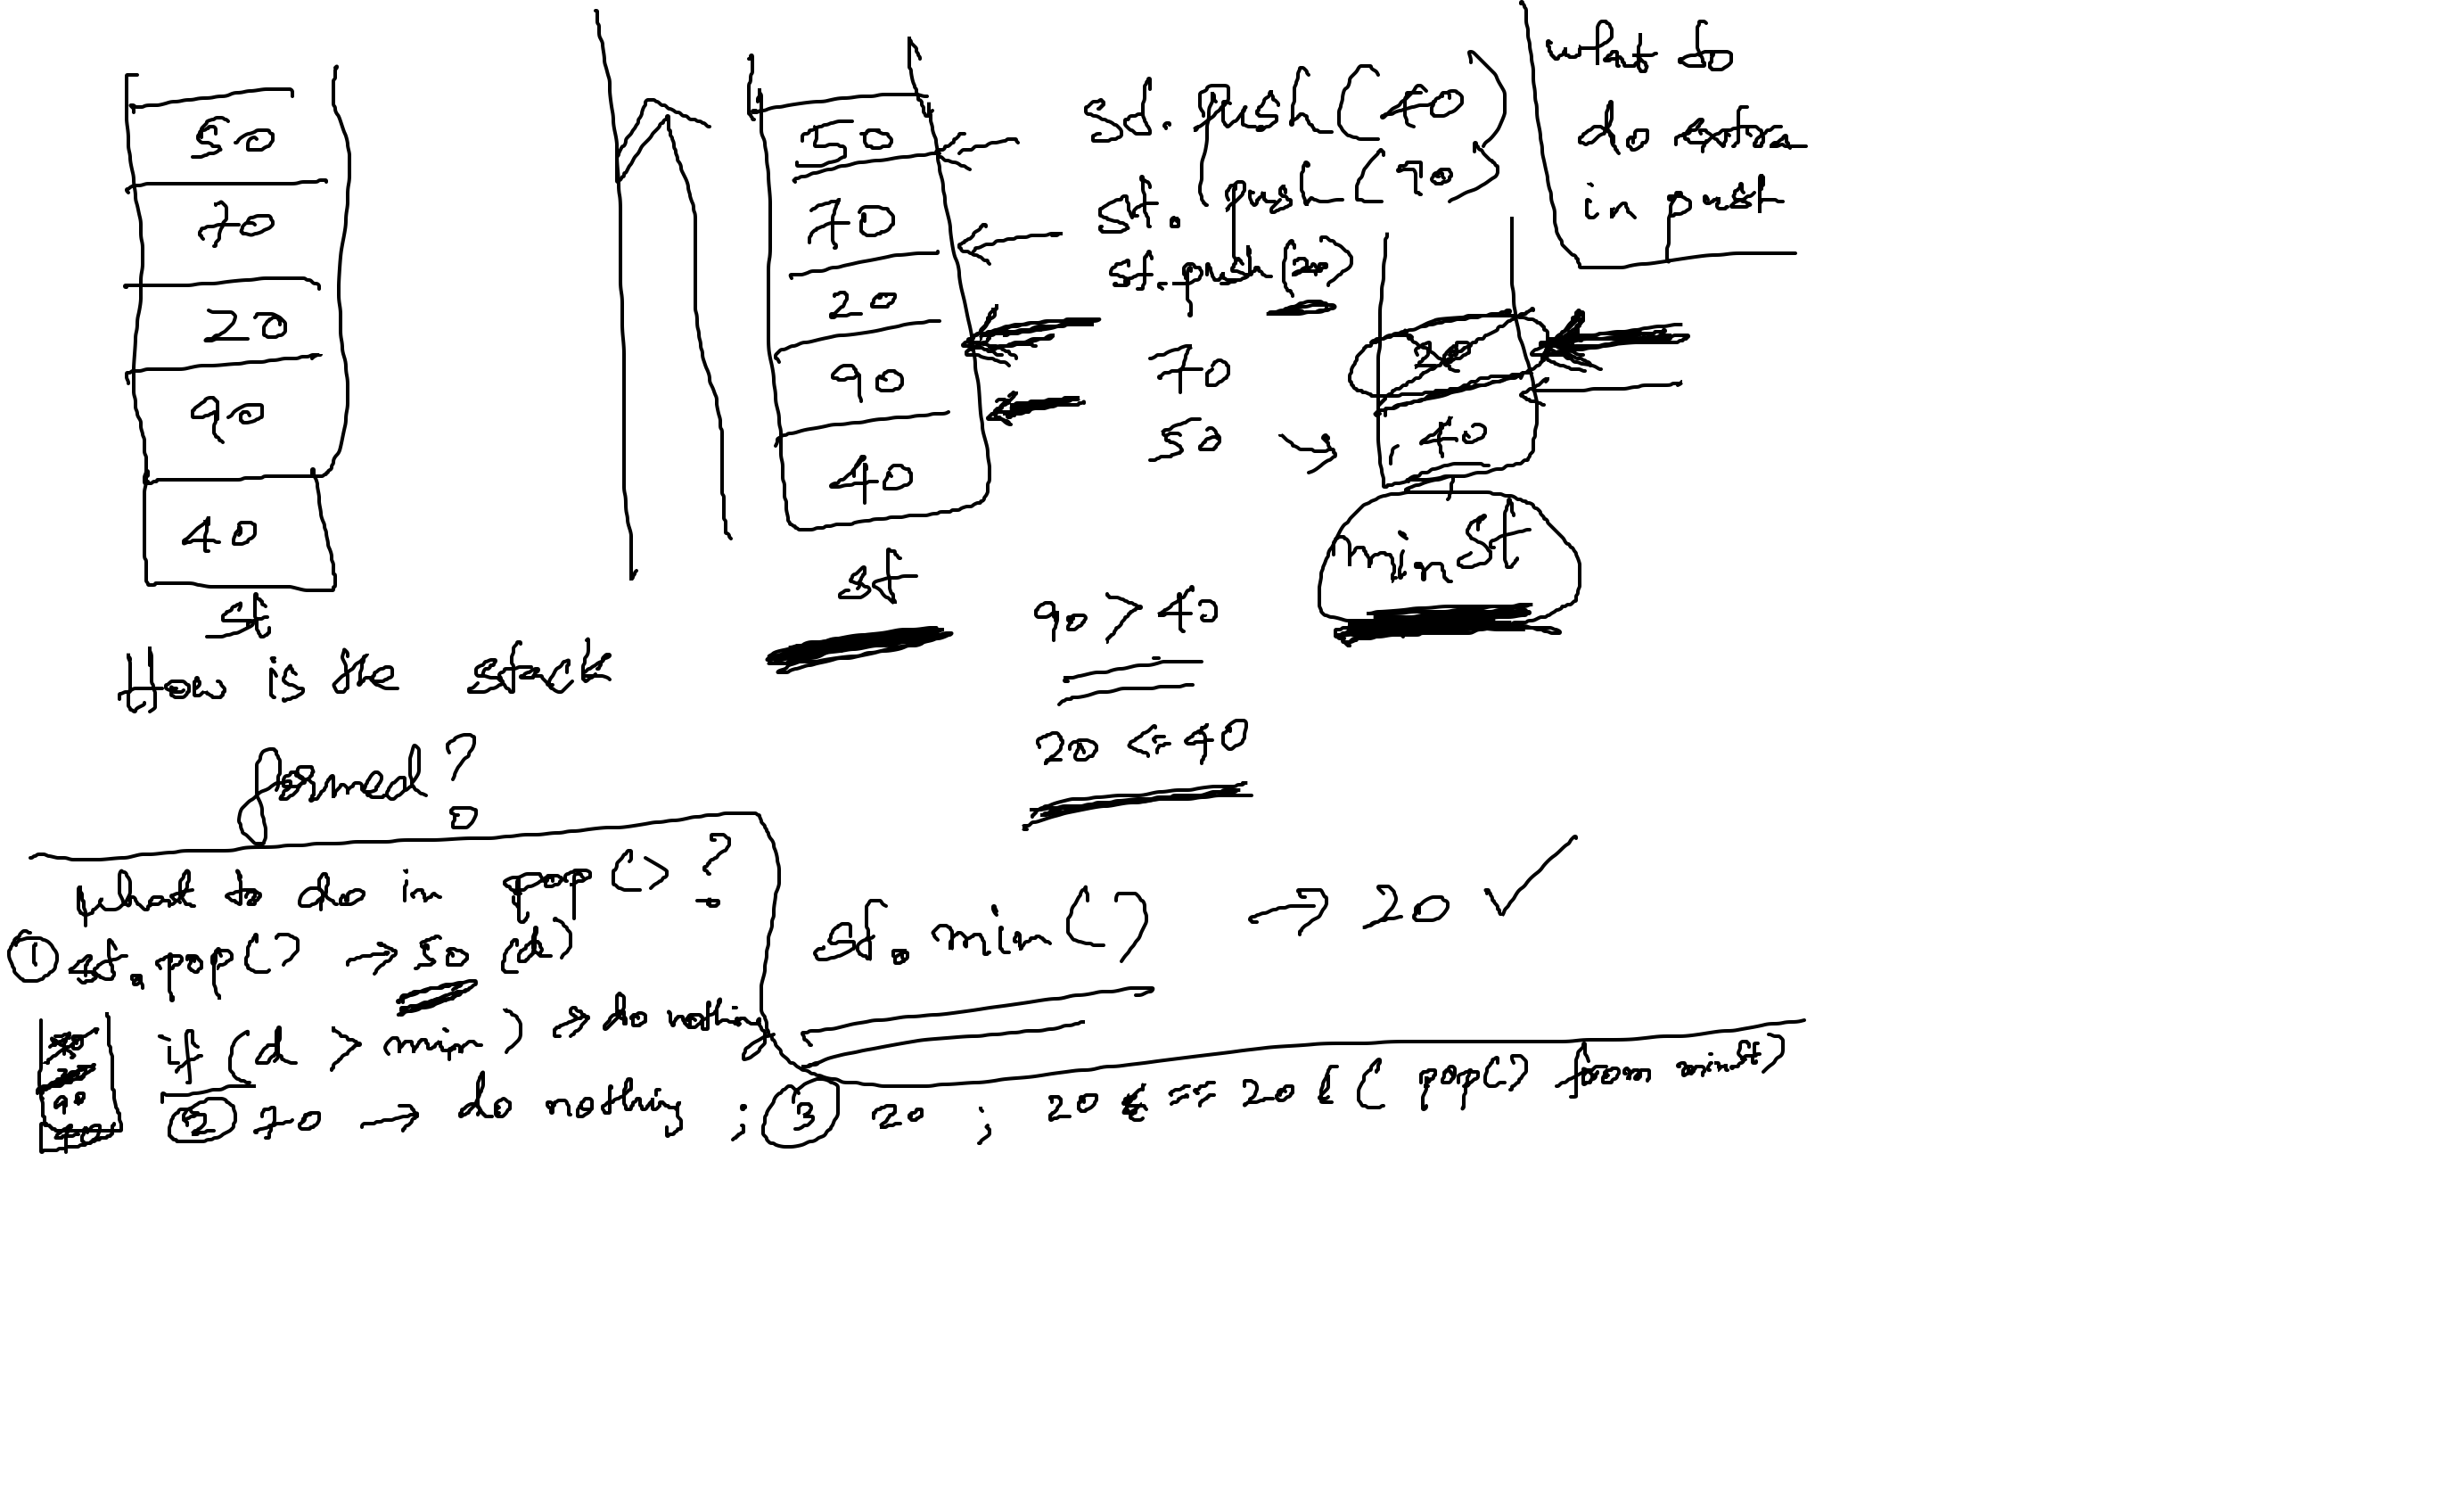 50
70
20
90
40
st
How is the stack
formed?
50
70
20
90
40
st
st. push (40)
st. push (90)
st. push (20)
70
50 →
20
40
min St
what to
do extra
in push
90 > 40
20 <= 40
st. min () → 20 ✓
what to do in pop () ?
① st. pop () → 50 (d)
if (d > min) → do nothing
② 70 → do nothing ; ③ 20 ; 20 == 20 ( pop() from minst)
40